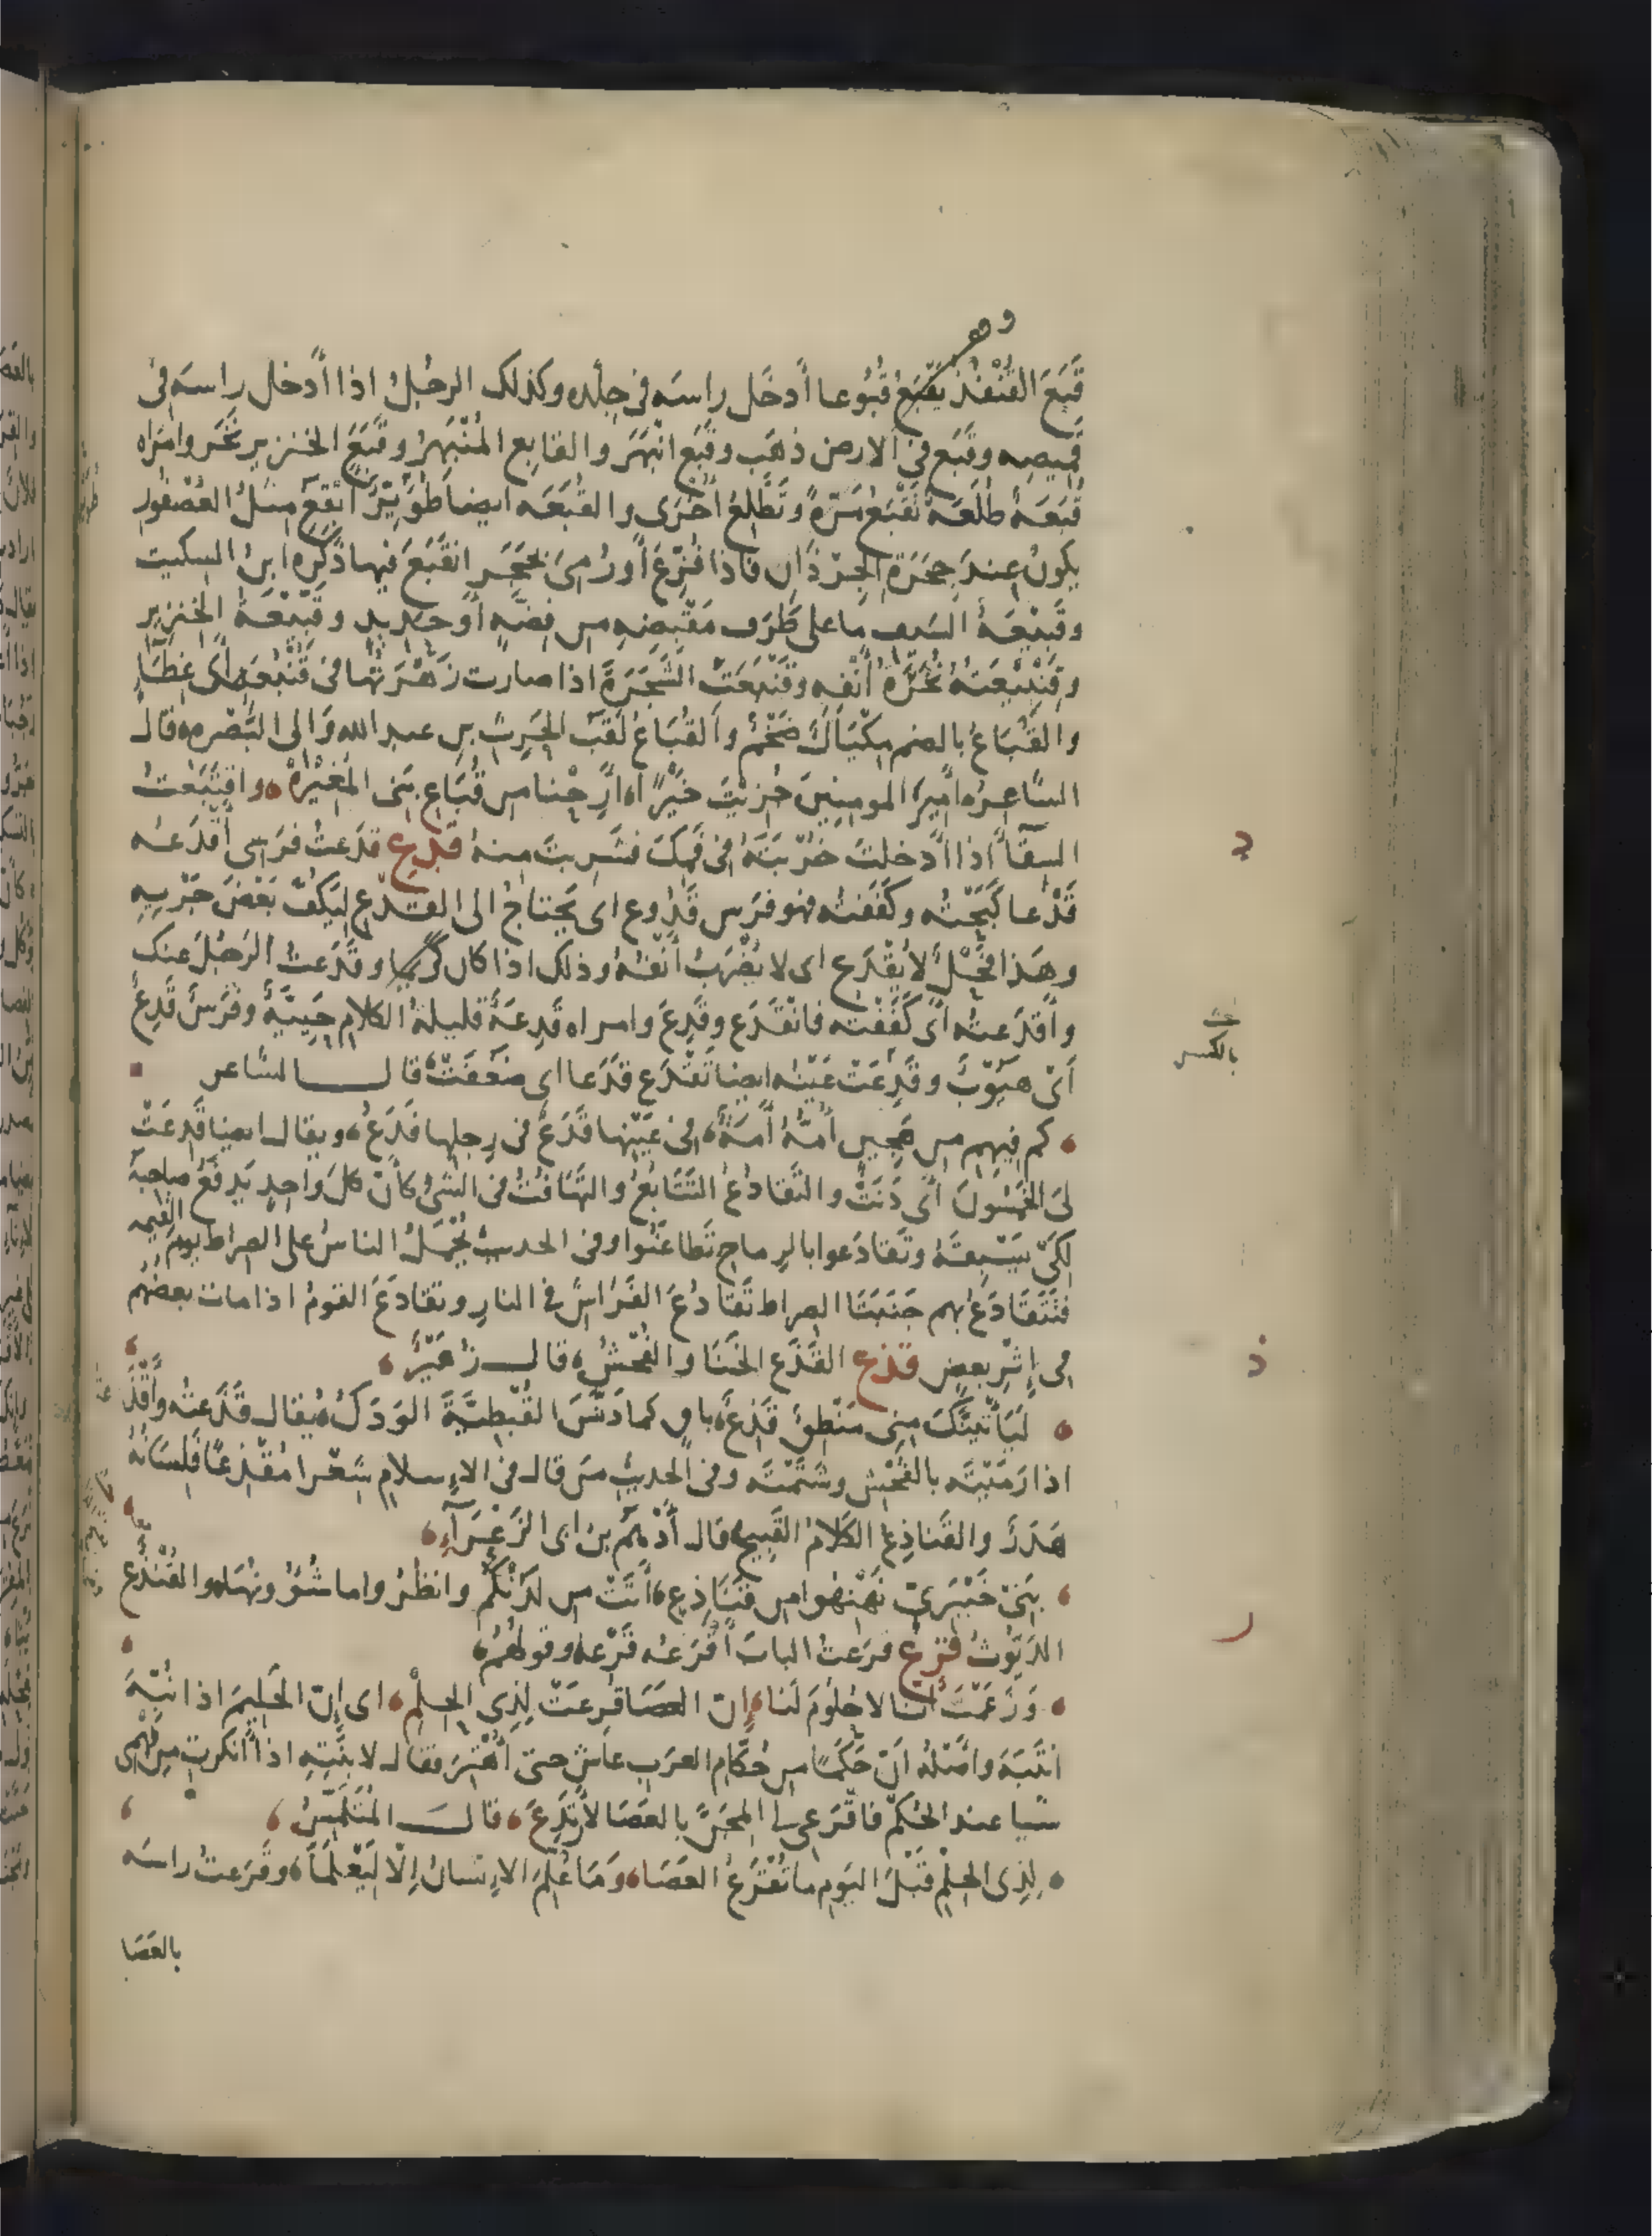 قَبَعَ القُنْفُذُ يَقْبَعُ قُبُوعا أَدخَل راسَه فى جِلْده وكذلك الرجُلُ اذا أَدخل راسَه فى
قَميصِه وقَبَع فى الارض ذهَب وقَبَع انْبَهَرَ والقابِع المُنْبَهِرُ وقَبَعَ الخنزير نَخَر وامرَاه
قُبَعَةٌ طُلَعَةٌ تَقْبَعُ مَرّةً وتَطْلعُ أُخْرَى والقُبَعَه ايضا طُوَيْئِرٌ ابْقعُ مثلُ العُصْفُور
يكونُ عِندَ جِحَرَةِ الجِرْذَانِ فاذا فُزِّعَ أو رُمِىَ بحَجَرٍ انقَبَعَ فيها ذَكَره ابنُ السِكيت
وقَبِيْعَةُ السَيف ما على طَرَف مَقْبِضِهِ من فِضّةٍ أو حَديدٍ وقَبِيْعَةُ الخِنزير
وقِنْبِيْعَتُهُ نُخَرَةُ أَنْفِه وقَنْبَعَتْ الشَجَرَةُ اذا صارت زَهْرَتُها فى قُنْبُعَةٍ أى غِطَآءٍ
والقُبَاعُ بالضم مِكْيَالٌ ضَخْمٌ والقُبَاعُ لَقَبُ الحَرِث بن عبد الله وَالى البَصْره قال
الشاعِرُ أميرَ المومِنِينَ جُزِيْتَ خَيْرًا أَرِحْنا من قُبَاعِ بَنى المُغِيْرَهْ واقتَبَعْتُ
السِقآءَ اذا أَدخلتَ خُرْبَتَهُ فى فَمِكَ فشَرِبتَ مِنهُ قدع قدَعتُ فرَسى أقدَعُه
قَدْعا كَبَحْتُه وكَفَفتُه فهو فَرَس قَدُوع اى يَحتاجُ الى القَدْعِ ليَكُفّ بَعْضَ جَرْيِهِ
وهَذا فَحْلٌ لا يُقْدَع اى لا يُضْرَبُ أنفُهُ وذلك اذا كان كَرِيما وقَدَعتُ الرَجُلَ عنك
وأقدَعتُه أى كَفَفْته فانْقَدَع وقَدِعَ وامراه قَدِعَةٌ قليلةُ الكلامِ حَيِيَّةٌ وفَرَسٌ قَدِعٌ
أىْ هَيُوْبٌ وقَدِعَتْ عَيْنُه ايضا تَقْدَع قَدَعا اى ضَعُفَتْ قال الشاعر
كم فيهِم من هَجِينٍ أُمُّهُ أَمَةٌ فى عَيْنِها قَدَعٌ فى رِجلِها فَدَعُ ويقال ايضا قَدِعَتْ
لىَ الخَمْسُونَ أى دَنَتْ والتَقادُعُ التَتَابُعُ والتهَافُتُ فى الشىءِ كأنّ كلَ واحِدٍ يَدفَعُ صاحِبَهُ
لِكَىْ يَسْبِقَهُ وتَقادَعوا بالرِماحِ تَطاعَنُوا وفى الحديث يُحْمَلُ الناسُ على الصِراط يومَ القيمه
فتَتَقَادَعُ بهم جَنَبَتَا الصِراط تَقَادُعَ الفَرَاشِ فى النار وتقادَعَ القومُ اذا مات بعضُهُم
فى إثْرِ بعض قذع القَذَع الخَنَا والفُحْشُ قال زهَيْرٌ
لَيَأتِيَنَّكَ مِنى مَنْطِقٌ قَذِعٌ باقٍ كما دَنَّسَ القُبْطِيَّةَ الوَدَكُ يُقال قَذَعتُه وأَقْذَ
عته
اذا رَمَيْتَه بالفُحْش وشَتَمْتَه وفى الحديث مَن قال فى الاِسلامِ شِعْرا مُقْذِعًا فلِسَانُهُ
هَدَرٌ والقَناذِعُ الكَلامُ القَبِيحُ قال أَدْهَمُ بنُ ابى الزَعْرَآءِ
بَنى خَيْبَرِىّ نَهْنِهُوا من قَنَاذِعٍ أَتَتْ من لَدُنْكُم وانظُرُوا ما شُؤونُها والقُنْذُع
الدَيّوثُ قرع قرَعتُ البابَ أقْرَعُه قَرْعا وقولهُم
وَزَعَمْتَ أنّا لا حُلُومَ لَنا إنّ العَصَا قُرِعَتْ لِذِى الحِلْمِ اى إنّ الحَلِيمَ اذا نُبِّهَ
انتَبَهَ وأصْلهُ أنّ حَكَمًا من حُكّام العرَبِ عاش حتى أُهْتِرَ فقال لابنَتِهِ اذا أنكرتِ من فَهْمى
شيا عند الحُكْمِ فاقْرَعى لى المِجَنَّ بالعَصَا لأرتَدِعَ قال المُتَلَمِّسُ
لِذِى الحِلْمِ قَبْلَ اليَومِ ما تُقْرَعُ العَصَا ومَا عُلِّمَ الاِنسانُ إلّا لِيَعْلَمَا وقَرَعتُ راسَه
بالعَصَا
د
بالكسر
ذ
ر